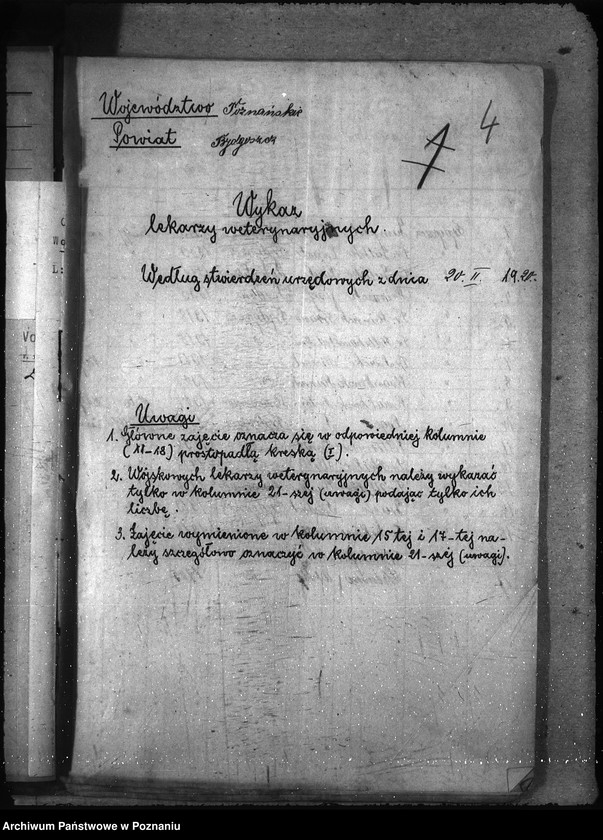 Województwo Poznańskie
Powiat Bydgoszcz
7
4
Wykaz
lekarzy weterynaryjnych.
Według stwierdzeń urzędowych z dnia 20. II. 1920.
Uwagi
1. Główne zajęcie oznacza się w odpowiedniej kolumnie
(11-18) prostopadłą kreską (I).
2. Wojskowych lekarzy weterynaryjnych należy wykazać
tylko w kolumnie 21-szej (uwagi) podając tylko ich
liczbę.
3. Zajęcie wymienione w kolumnie 15tej i 17-tej na-
leży szczegółowo oznaczyć w kolumnie 21-szej (uwagi).
Archiwum Państwowe w Poznaniu